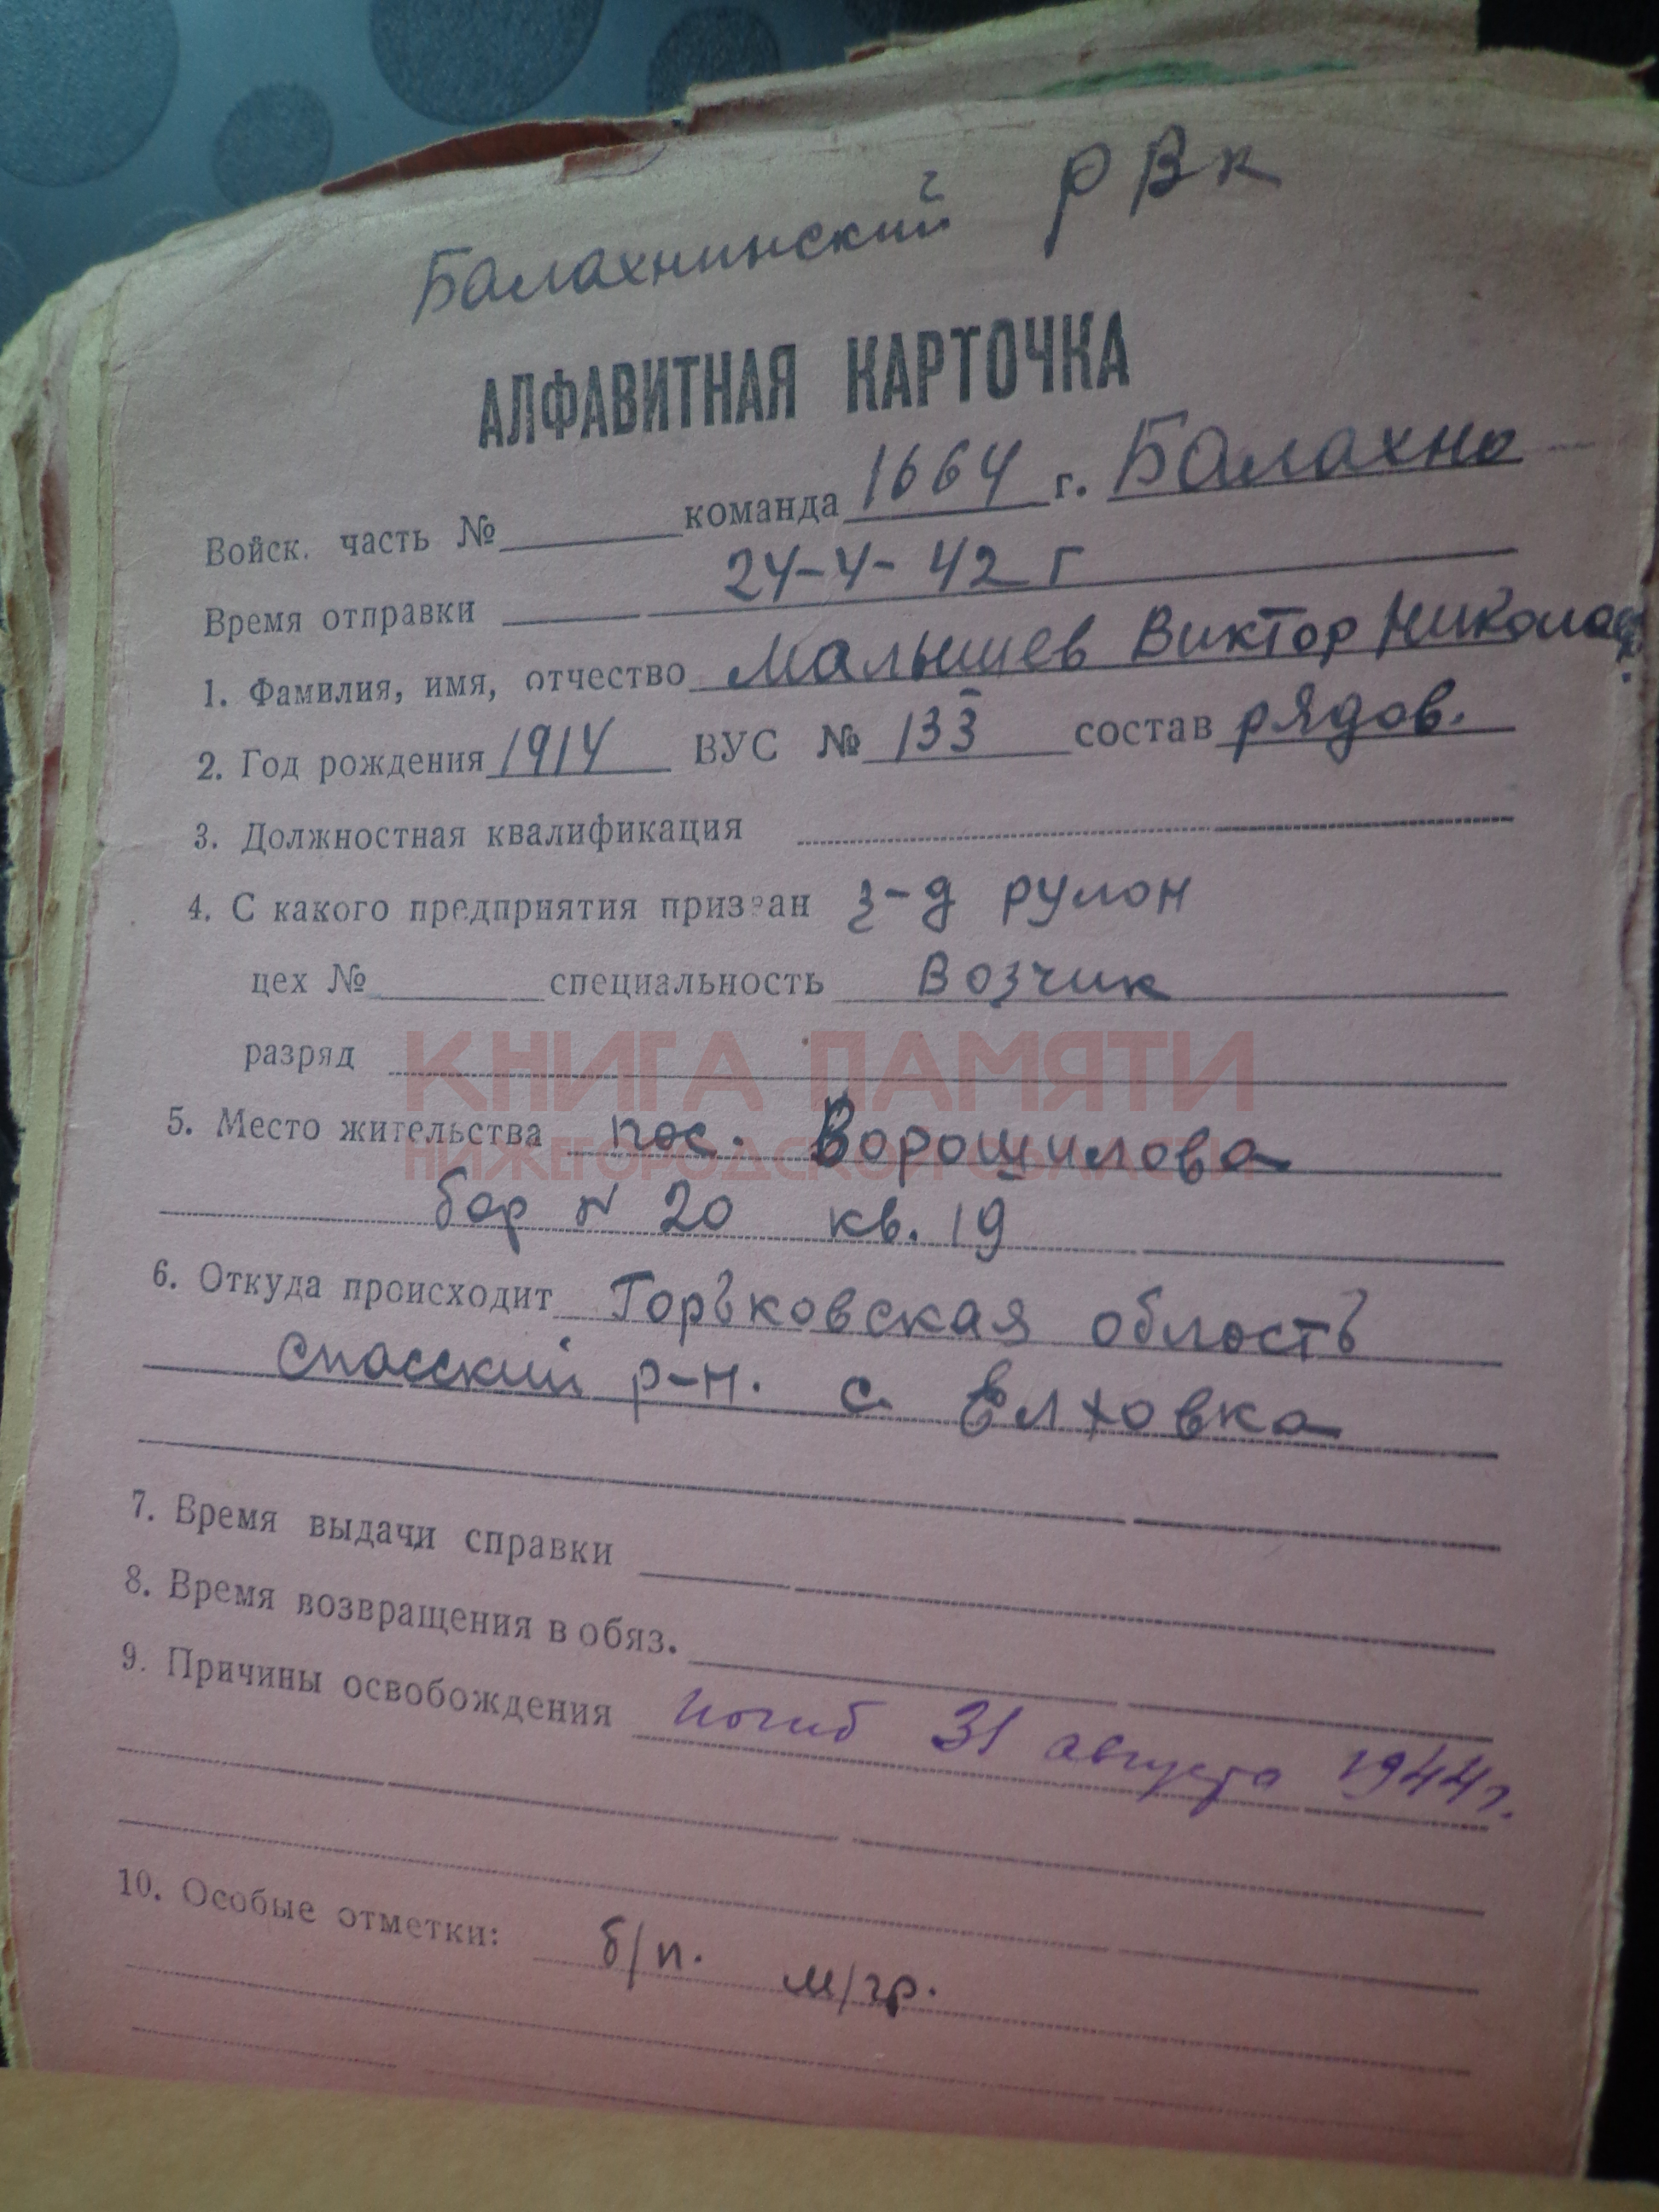 Балахнинский РВК
АЛФАВИТНАЯ КАРТОЧКА
Войск. часть № команда 1664 г. Балахна
Время отправки 24-4-42 г
1. Фамилия, имя, отчество Малышев Виктор Николаев.
2. Год рождения 1914 ВУС № 133 состав рядов.
3. Должностная квалификация
4. С какого предприятия призван з-д рулон
цех № специальность Возчик
разряд
КНИГА ПАМЯТИ
5. Место жительства пос. Ворошилова
НИЖЕГОРОДСКОЙ ОБЛАСТИ
бар № 20 кв. 19
6. Откуда происходит Горьковская область
Спасский р-н. с. Елховка
7. Время выдачи справки
8. Время возвращения в обяз.
9. Причины освобождения Погиб 31 августа 1944г.
10. Особые отметки: б/п. м/гр.